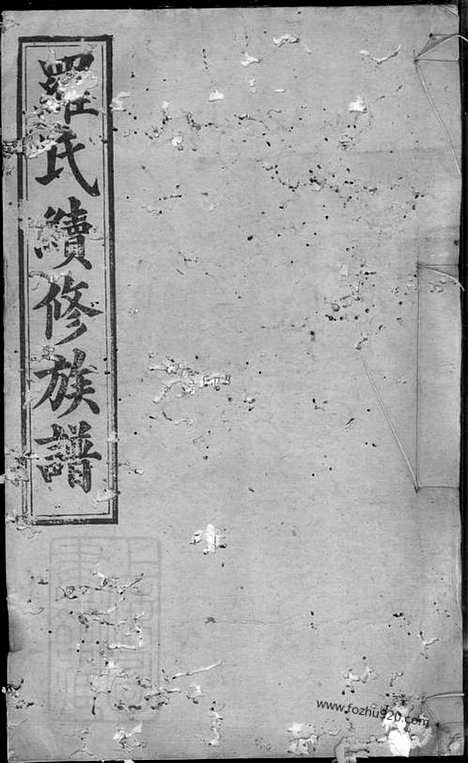 羅氏續修族譜
www.fozhu920.com